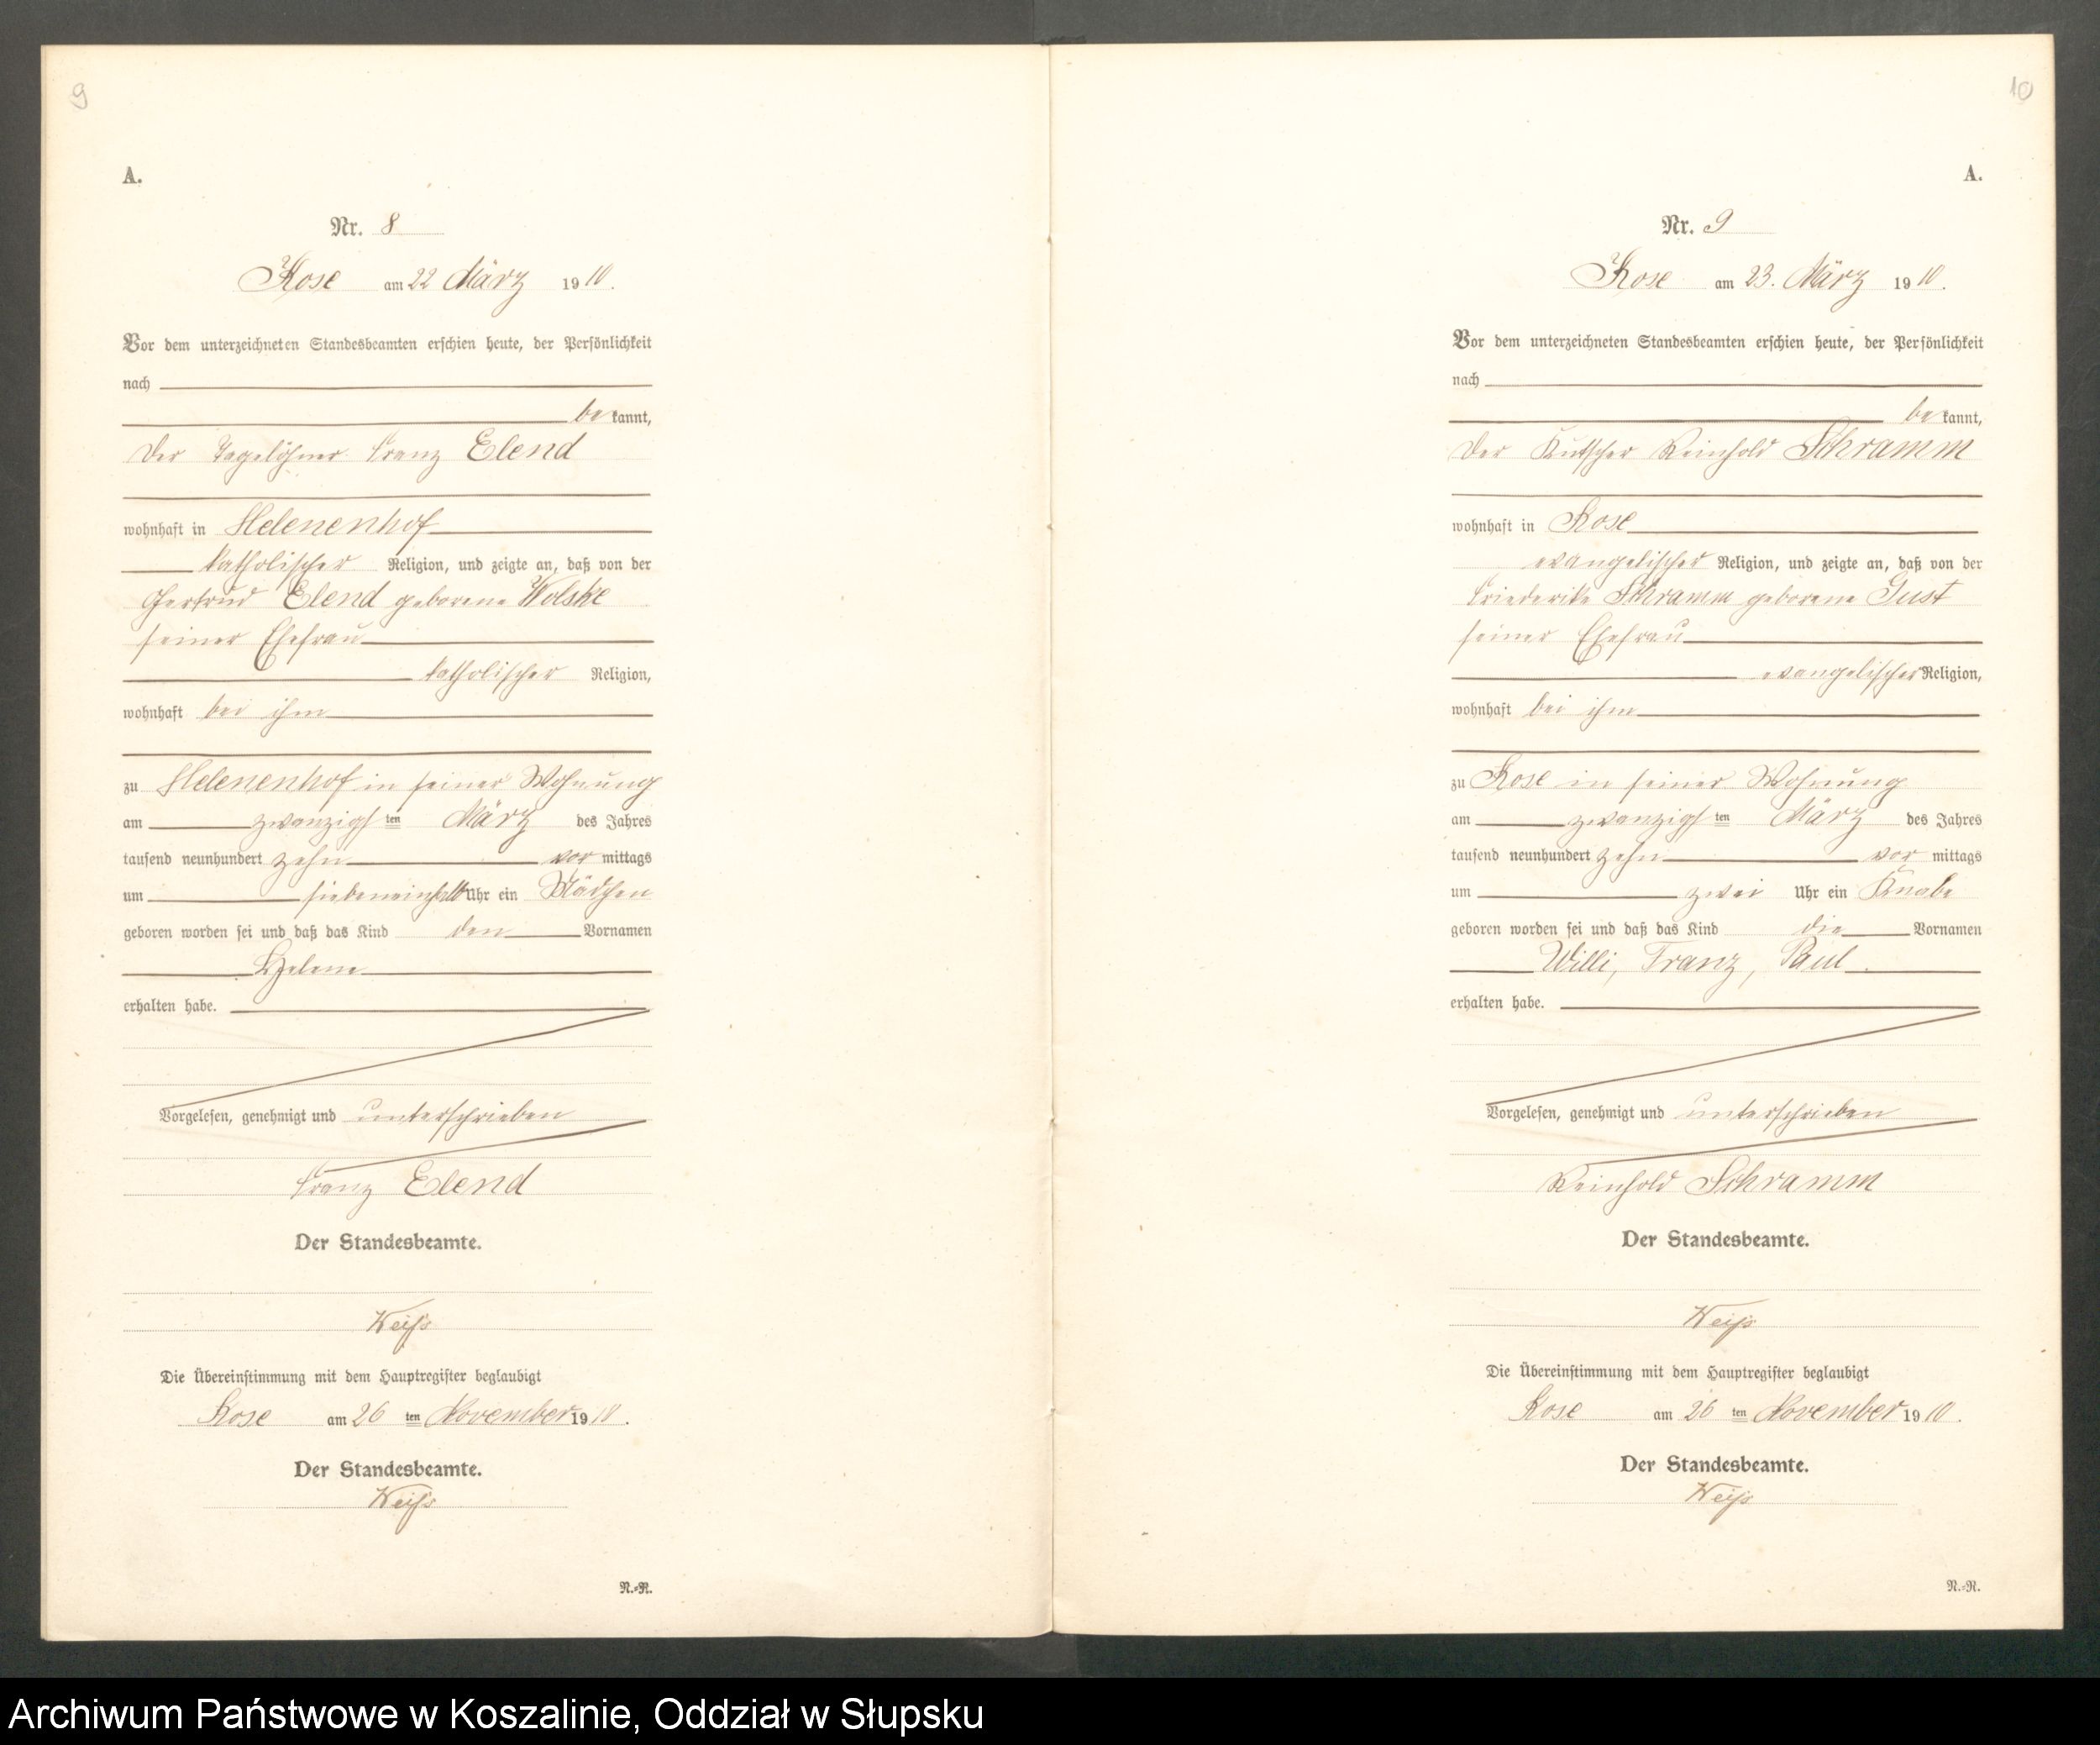 9
A.
Nr. 8
Kose am 22 März 1910.
Vor dem unterzeichneten Standesbeamten erschien heute, der Persönlichkeit
nach
be kannt,
der Tagelöhner Franz Elend
wohnhaft in Helenenhof
katholischer Religion, und zeigte an, daß von der
Gertrud Elend geborene Wolske
seiner Ehefrau
katholischer Religion,
wohnhaft bei ihm
zu Helenenhof in seiner Wohnung
am zwanzigsten März des Jahres
tausend neunhundert zehn vor mittags
um siebeneinhalb Uhr ein Mädchen
geboren worden sei und daß das Kind den Vornamen
Helene
erhalten habe.
Vorgelesen, genehmigt und unterschrieben
Franz Elend
Der Standesbeamte.
Weiß
Die Übereinstimmung mit dem Hauptregister beglaubigt
Kose am 26 ten November 1910.
Der Standesbeamte.
Weiß
N.=R.
10
A.
Nr. 9
Kose am 23. März 1910.
Vor dem unterzeichneten Standesbeamten erschien heute, der Persönlichkeit
nach
be kannt,
der Kutscher Reinhold Schramm
wohnhaft in Kose
evangelischer Religion, und zeigte an, daß von der
Friederike Schramm geborene Gust
seiner Ehefrau
evangelischer Religion,
wohnhaft bei ihm
zu Kose in seiner Wohnung
am zwanzigsten März des Jahres
tausend neunhundert zehn vor mittags
um zwei Uhr ein Knabe
geboren worden sei und daß das Kind die Vornamen
Willi, Franz, Paul
erhalten habe.
Vorgelesen, genehmigt und unterschrieben
Reinhold Schramm
Der Standesbeamte.
Weiß
Die Übereinstimmung mit dem Hauptregister beglaubigt
Kose am 26 ten November 1910.
Der Standesbeamte.
Weiß
N.=R.
Archiwum Państwowe w Koszalinie, Oddział w Słupsku